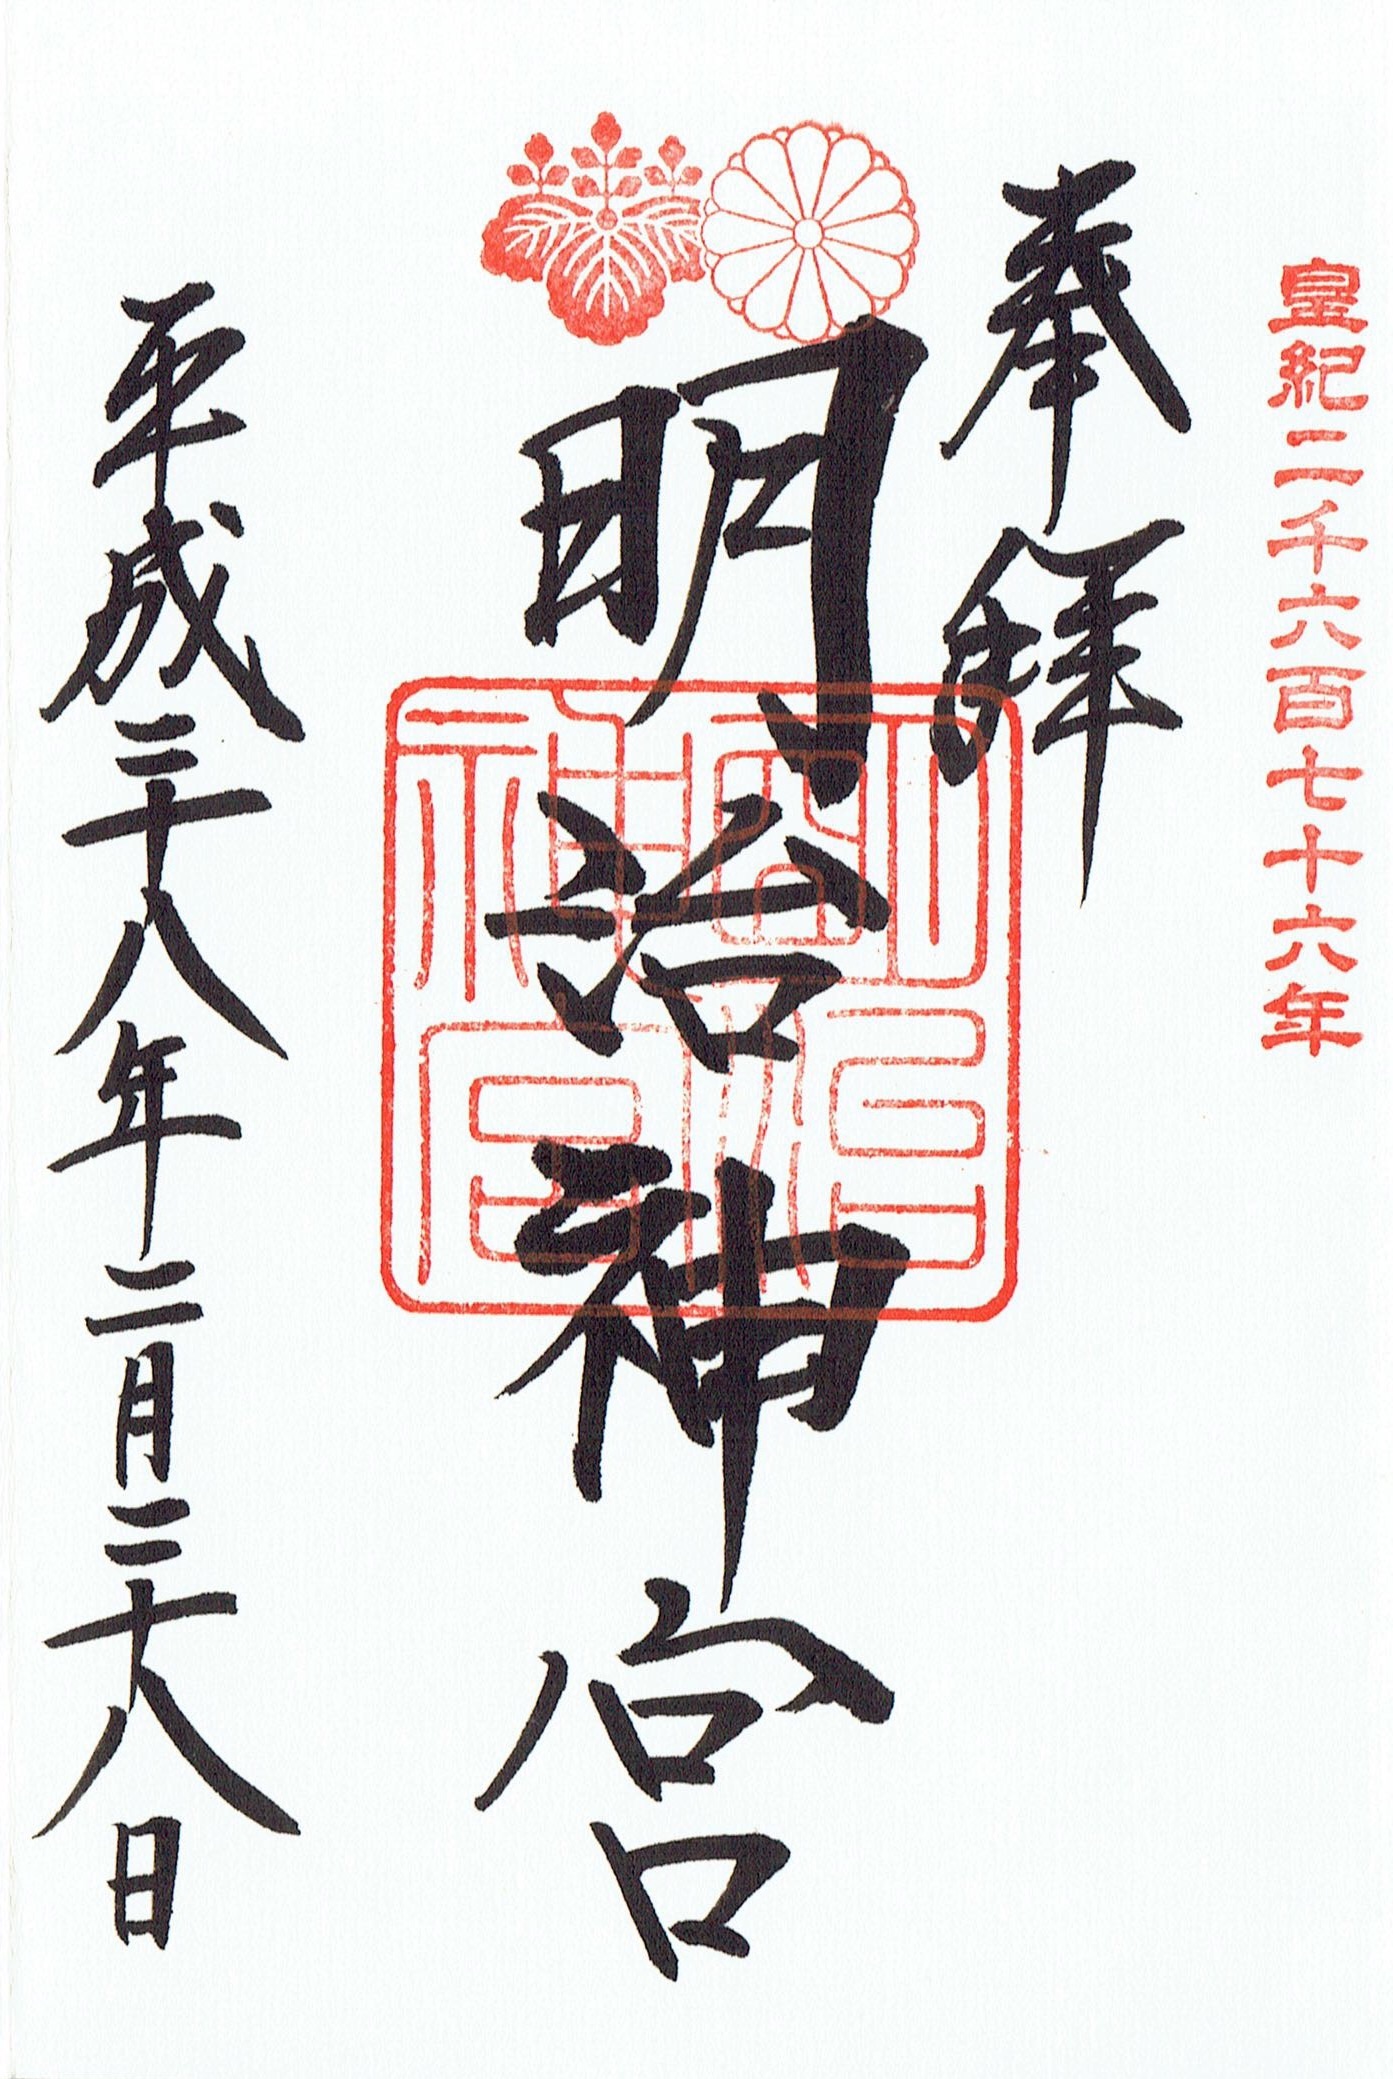 皇紀二千六百七十六年
奉拝
明治神宮
明治神宮
平成二十八年二月二十八日